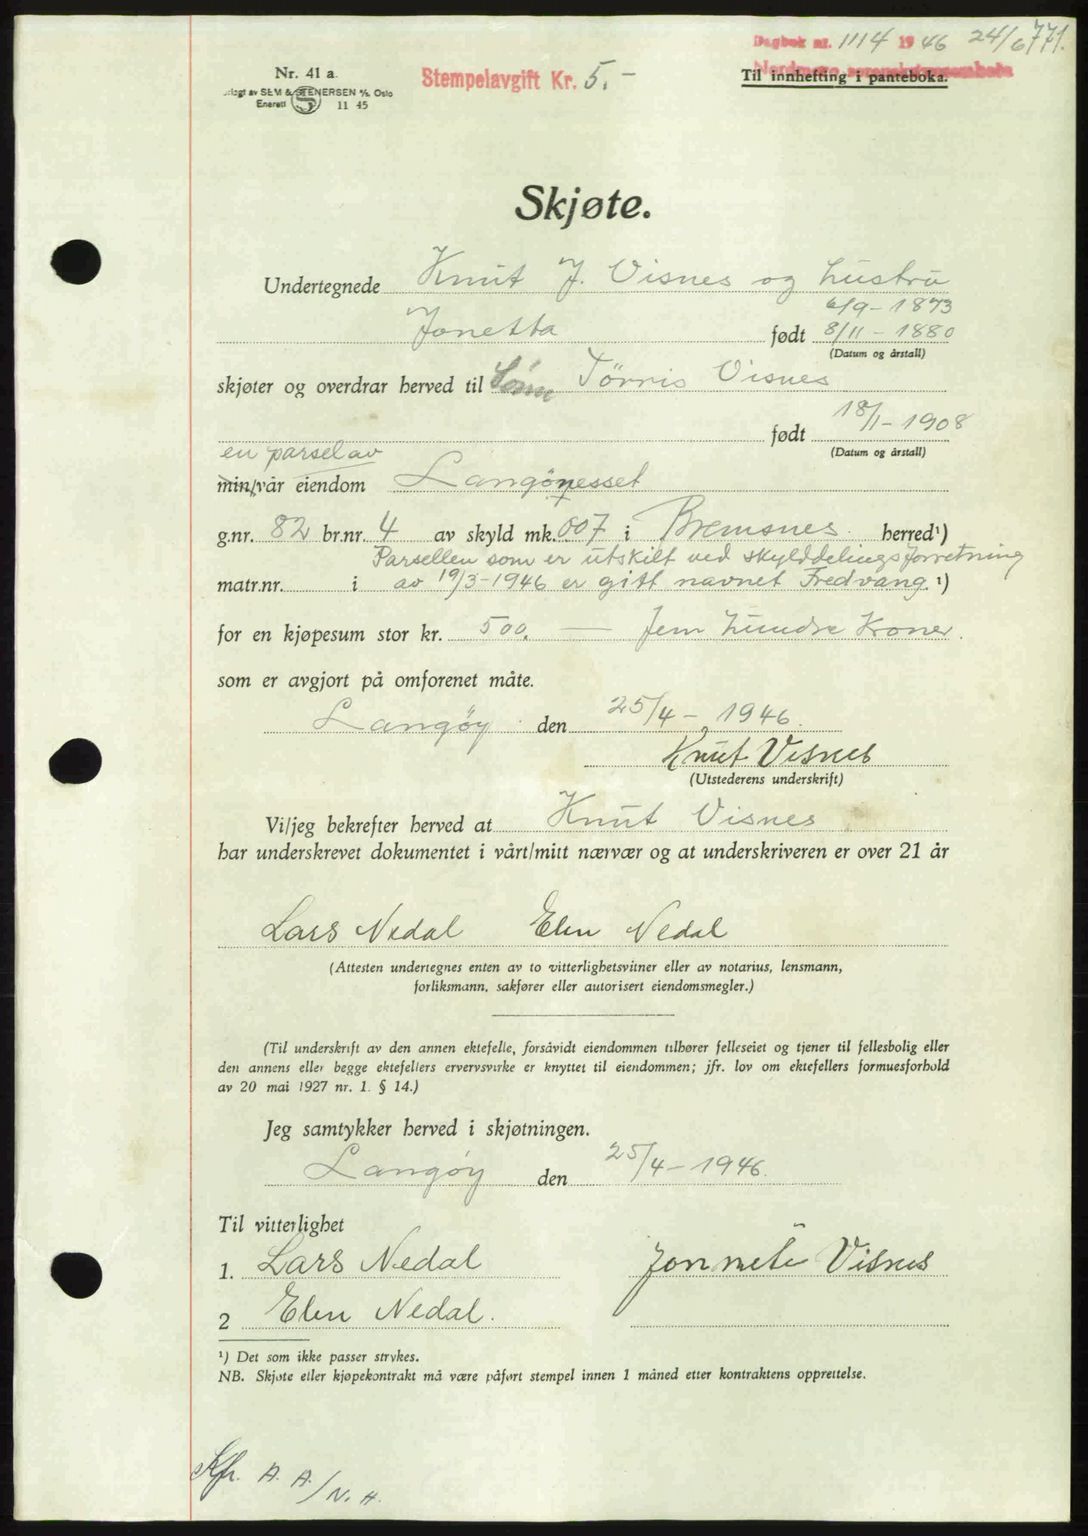 Dagbok nr. 1114 1946 24/6 771.
Nordmøre sorenskriverembete
Nr. 41 a.
Stempelavgift Kr. 5.-
Til innhefting i panteboka.
SEM & STENERSEN A/S, Oslo
Enerett S 11 45
Skjøte.
Undertegnede Knut J. Visnes og hustru
6/9-1873
Jonetta født 8/11-1880
(Datum og årstall)
skjøter og overdrar herved til Sønn Törris Visnes
født 18/1-1908
(Datum og årstall)
en parsel av
min/vår eiendom Langönesset
g.nr. 82 br.nr. 4 av skyld mk. 007 i Bremsnes herred¹)
Parsellen som er utskilt ved skylddelingsforretning
matr.nr. i av 19/3-1946 er gitt navnet Fredvang. ¹)
for en kjøpesum stor kr. 500. — Fem hundre Kroner.
som er avgjort på omforenet måte.
Langöy den 25/4-1946.
Knut Visnes
(Utstederens underskrift)
Vi/jeg bekrefter herved at Knut Visnes
har underskrevet dokumentet i vårt/mitt nærvær og at underskriveren er over 21 år
Lars Nedal Elen Nedal
(Attesten undertegnes enten av to vitterlighetsvitner eller av notarius, lensmann,
forliksmann, sakfører eller autorisert eiendomsmegler.)
(Til underskrift av den annen ektefelle, forsåvidt eiendommen tilhører felleseiet og tjener til fellesbolig eller
den annens eller begge ektefellers ervervsvirke er knyttet til eiendommen; jfr. lov om ektefellers formuesforhold
av 20 mai 1927 nr. 1. § 14.)
Jeg samtykker herved i skjøtningen.
Langöy den 25/4-1946.
Til vitterlighet
1. Lars Nedal Jonnete Visnes
2 Elen Nedal.
¹) Det som ikke passer strykes.
NB. Skjøte eller kjøpekontrakt må være påført stempel innen 1 måned etter kontraktens opprettelse.
Kfr. A. A./N. H.